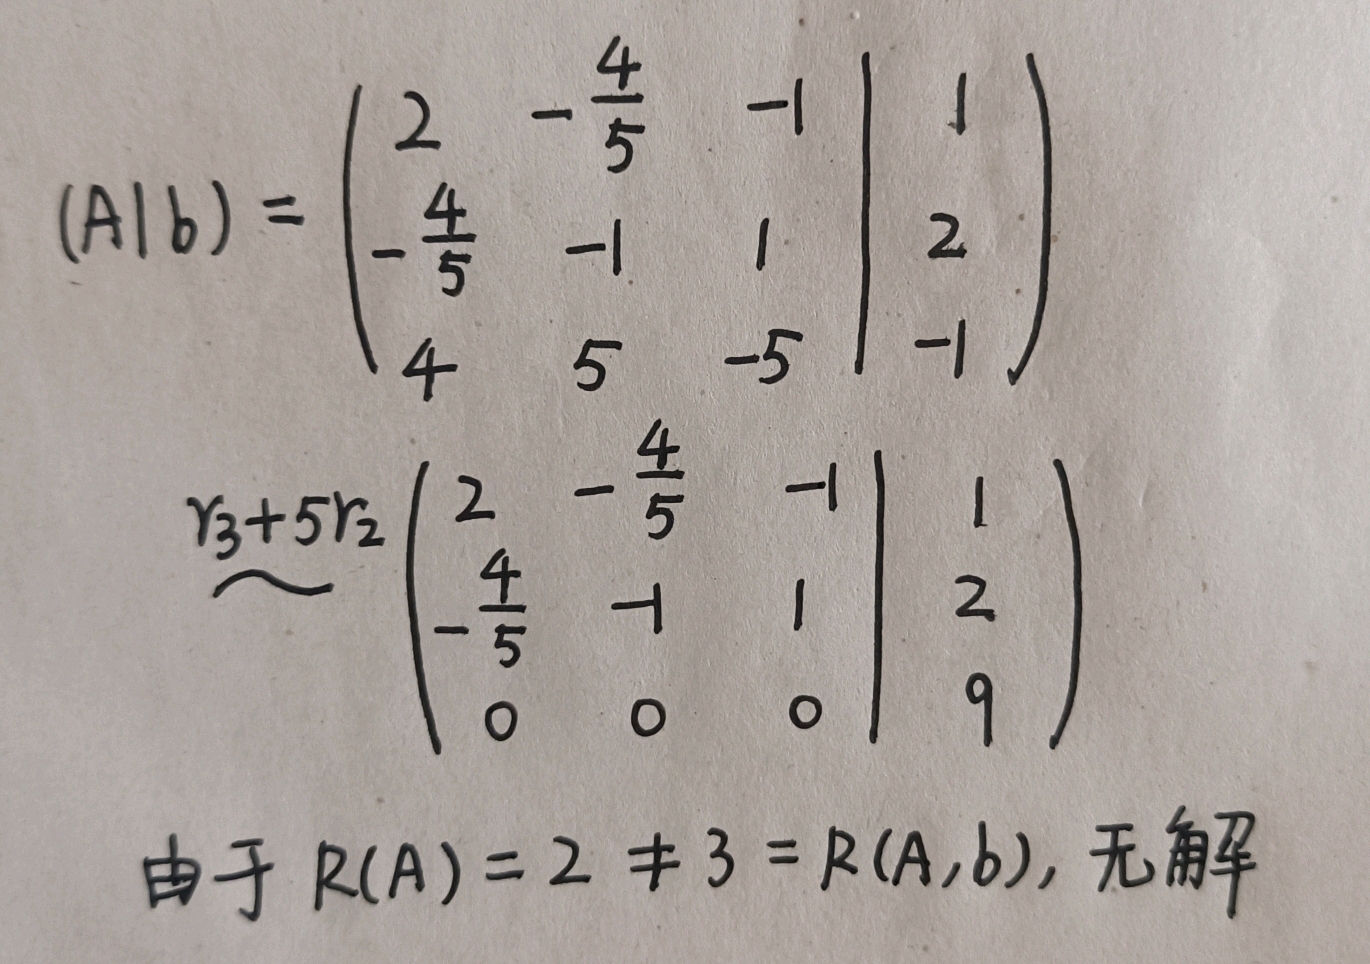 (A|b) = ( 2 -4/5 -1 | 1
-4/5 -1 1 | 2
4 5 -5 | -1 )
r₃+5r₂ ~ ( 2 -4/5 -1 | 1
-4/5 -1 1 | 2
0 0 0 | 9 )
由于 R(A) = 2 ≠ 3 = R(A,b), 无解